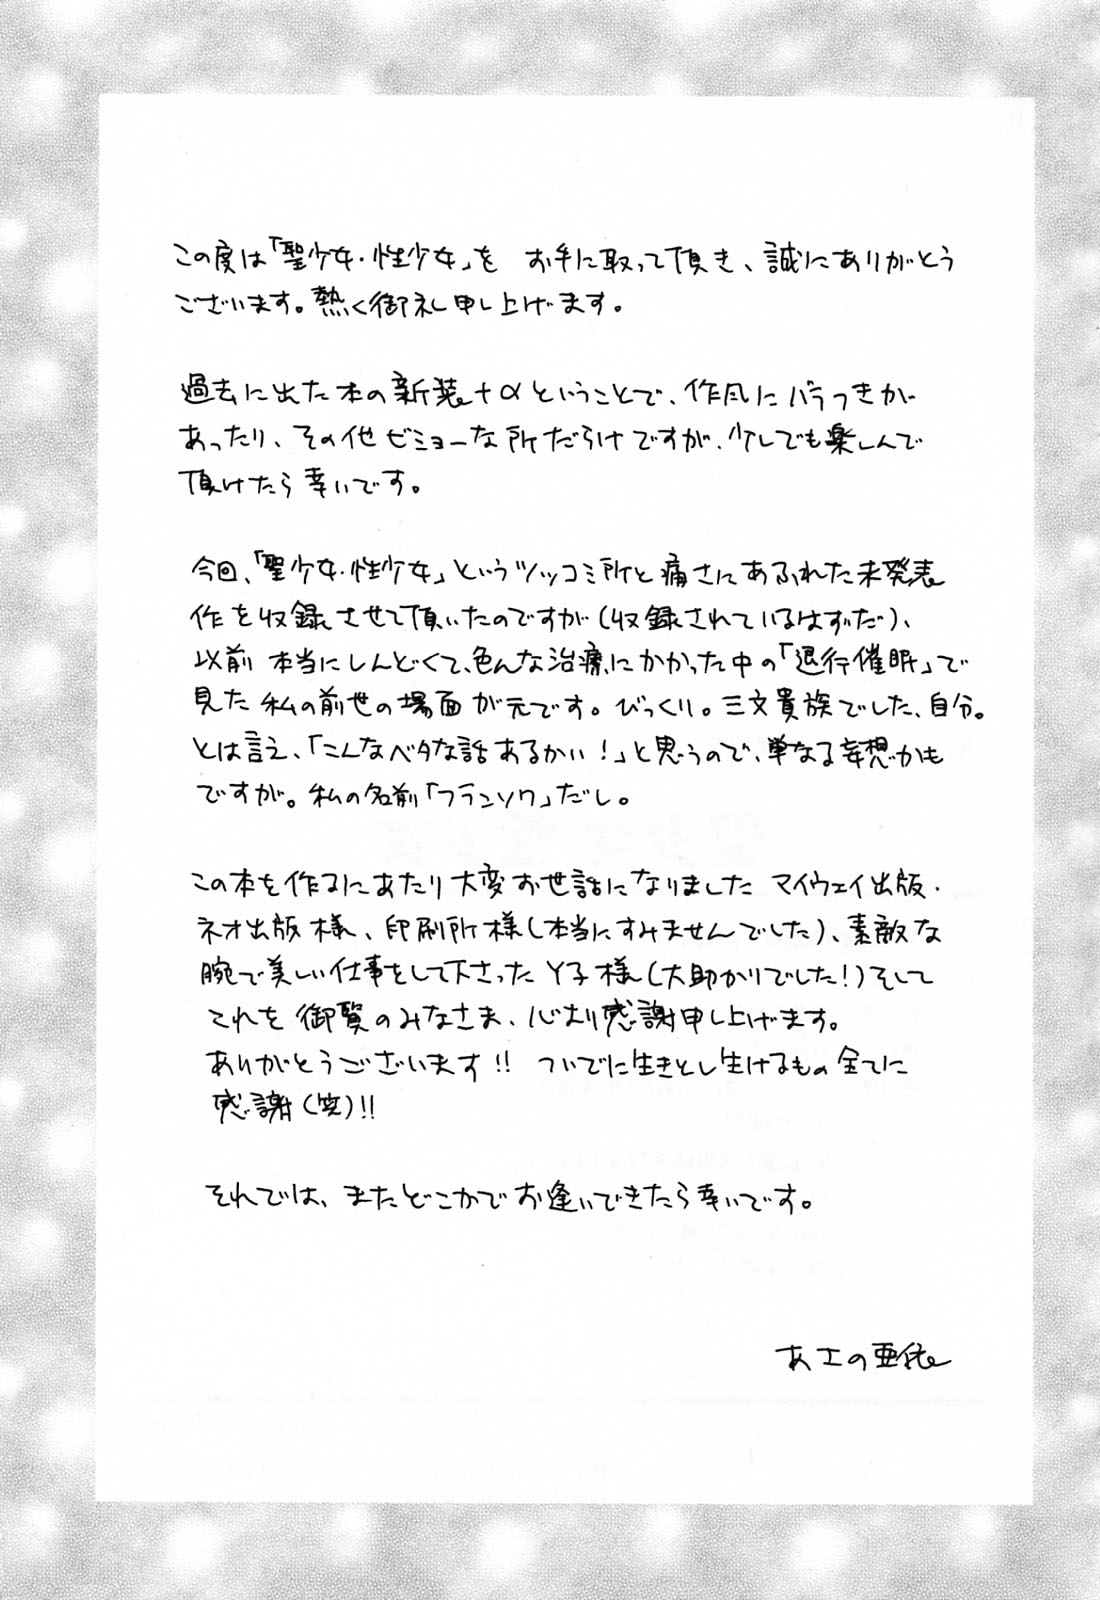 この度は「聖少女・性少女」を お手に取って頂き、誠にありがとう
ございます。熱く御礼申し上げます。
過去に出た本の新装+αということで、作風にバラつきが
あったり、その他ビミョーな所だらけですが、少しでも楽しんで
頂けたら幸いです。
今回、「聖少女・性少女」というツッコミ所と痛さにあふれた未発表
作を収録させて頂いたのですが(収録されているはずだ)、
以前 本当にしんどくて、色んな治療にかかった中の「退行催眠」で
見た私の前世の場面が元です。びっくり。三文貴族でした、自分。
とは言え、「こんなベタな話あるかい!」と思うので、単なる妄想かも
ですが。私の名前「フランソワ」だし。
この本を作るにあたり大変お世話になりました マイウェイ出版・
ネオ出版様、印刷所様(本当にすみませんでした)、素敵な
腕で美しい仕事をして下さったY子様(大助かりでした!)そして
これを御覧のみなさま、心より感謝申し上げます。
ありがとうございます!! ついでに生きとし生けるもの全てに
感謝(笑)!!
それでは、またどこかでお逢いできたら幸いです。
あさの亜依